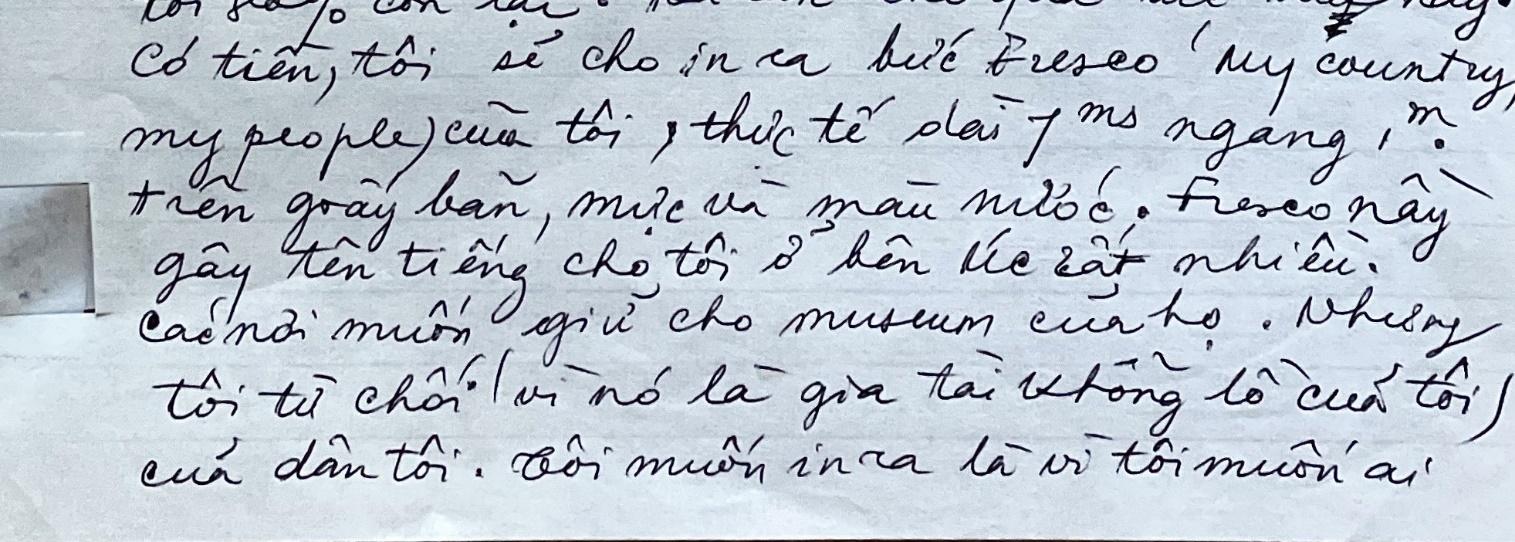 còn lại.
Có tiền, tôi sẽ cho in ra bức Fresco (My country,
my people) của tôi, thực tế dài 7 ms ngang 1 m.
trên giấy bản, mực và màu nước. Fresco nầy
gây tên tiếng cho tôi ở bên Úc rất nhiều.
Các nơi muốn giữ cho museum của họ. Nhưng
tôi từ chối. (vì nó là gia tài khổng lồ của tôi)
của dân tôi. Tôi muốn in ra là vì tôi muốn ai